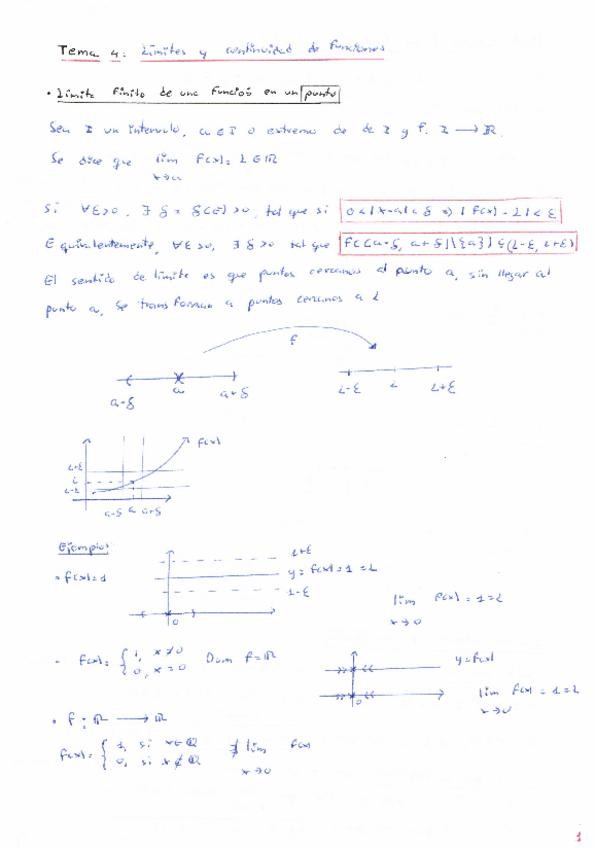 Tema 4: Límites y continuidad de funciones
• Límite finito de una función en un punto
Sea I un intervalo, a ∈ I o extremo de de I y f: I → ℝ.
Se dice que lim f(x) = L ∈ ℝ
x→a
si ∀ε>0, ∃ δ = δ(ε) >0, tal que si 0<|x-a|<δ ⇒ |f(x)-L|<ε
Equivalentemente, ∀ε>0, ∃ δ>0 tal que f((a-δ, a+δ)\{a}) ⊆ (L-ε, L+ε)
El sentido de límite es que puntos cercanos al punto a, sin llegar al
punto a, se transforman a puntos cercanos a L
f
a-δ a a+δ L-ε L L+ε
f(x)
L+ε
L
L-ε
a-δ a a+δ
Ejemplos
• f(x)=1
1+ε
y = f(x) = 1 = L
1-ε
0
lim f(x) = 1 = L
x→0
• f(x) = { 1, x≠0 Dom f = ℝ
0, x=0
y=f(x)
0
lim f(x) = 1 = L
x→0
• f: ℝ → ℝ
f(x) = { 1, si x∈ℚ ∄ lim f(x)
0, si x∉ℚ x→0
1